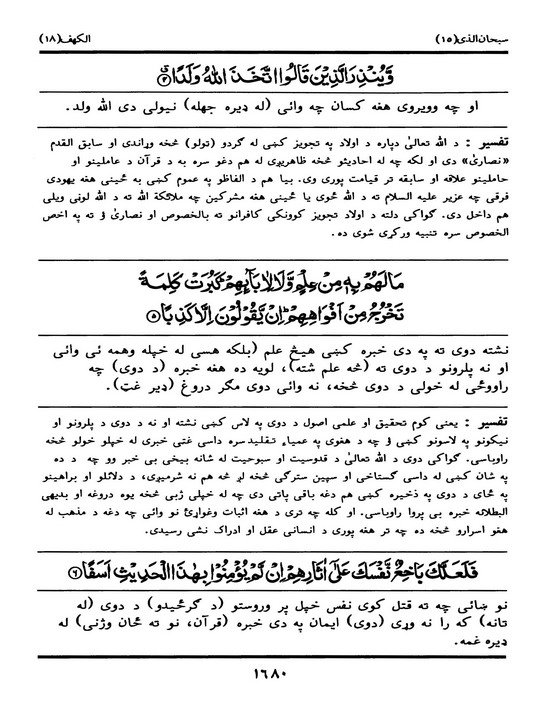 سبحان الذی (١٥) الکهف (١٨)
وَّيُنْذِرَ الَّذِيْنَ قَالُوا اتَّخَذَ اللّٰهُ وَلَدًا ﴿٤﴾
او چه وویروی هغه کسان چه وائی (له ډیره جهله) نیولی دی الله ولد.
تفسیر : د الله تعالیٰ دپاره د اولاد په تجویز کښی له گردو (تولو) څخه وړاندی او سابق القدم
«نصاریٰ» دی او لکه چه له احادیثو څخه ظاهریږی له هم دغو سره به د قرآن د عاملینو او
حاملینو علاقه او سابقه تر قیامت پوری وی. بیا هم د الفاظو په عموم کښی به ځینی هغه یهودی
فرقی چه عزیر علیه السلام ته د الله ځوی یا ځینی هغه مشرکین چه ملائکة الله ته د الله لوڼی ویلی
هم داخل دی. گواکی دلته د اولاد تجویز کوونکی کافرانو ته بالخصوص او نصاریٰ ؤ ته په اخص
الخصوص سره تنبیه ورکړی شوی ده.
مَا لَهُمْ بِهٖ مِنْ عِلْمٍ وَّلَا لِاٰبَآئِهِمْ ۭ كَبُرَتْ كَلِمَةً
تَخْرُجُ مِنْ اَفْوَاهِهِمْ ۭ اِنْ يَّقُوْلُوْنَ اِلَّا كَذِبًا ﴿٥﴾
نشته دوی ته په دی خبره کښی هیڅ علم (بلکه هسی له خپله وهمه ئی وائی
او نه پلرونو د دوی ته (څه علم شته)، لویه ده هغه خبره (د دوی) چه
راووځی له خولی د دوی څخه، نه وائی دوی مگر دروغ (ډیر غټ).
تفسیر : یعنی کوم تحقیق او علمی اصول د دوی په لاس کښی نشته او نه د دوی د پلرونو او
نیکونو په لاسونو کښی ؤ چه د هغوی په عمیاء تقلید سره داسی غټی خبری له خپلو خولو څخه
راوباسی. گواکی دوی د الله تعالیٰ د قدوسیت او سبوحیت له شانه بیخی بی خبر وو چه د ده
په شان کښی له داسی گستاخی او سپین سترگی څخه لږ څه هم نه شرمیږی، د دلائلو او براهینو
په ځای د دوی په ذخیره کښی هم دغه باقی پاتی دی چه له خپلی ژبی څخه یوه دروغه او بدیهی
البطلانه خبره بی پروا راوباسی. او کله چه تری د هغه اثبات وغواړئ نو وائی چه دغه د مذهب له
هغو اسرارو څخه ده چه تر هغه پوری د انسانی عقل او ادراک نشی رسیدی.
فَلَعَلَّكَ بَاخِعٌ نَّفْسَكَ عَلٰٓى اٰثَارِهِمْ اِنْ لَّمْ يُؤْمِنُوْا بِهٰذَا الْحَدِيْثِ اَسَفًا ﴿٦﴾
نو ښائی چه ته قتل کوی نفس خپل پر وروستو (د گرځیدو) د دوی (له
تانه) که را نه وړی (دوی) ایمان په دی خبره (قرآن، نو ته ځان وژنی) له
ډیره غمه.
١٦٨٠